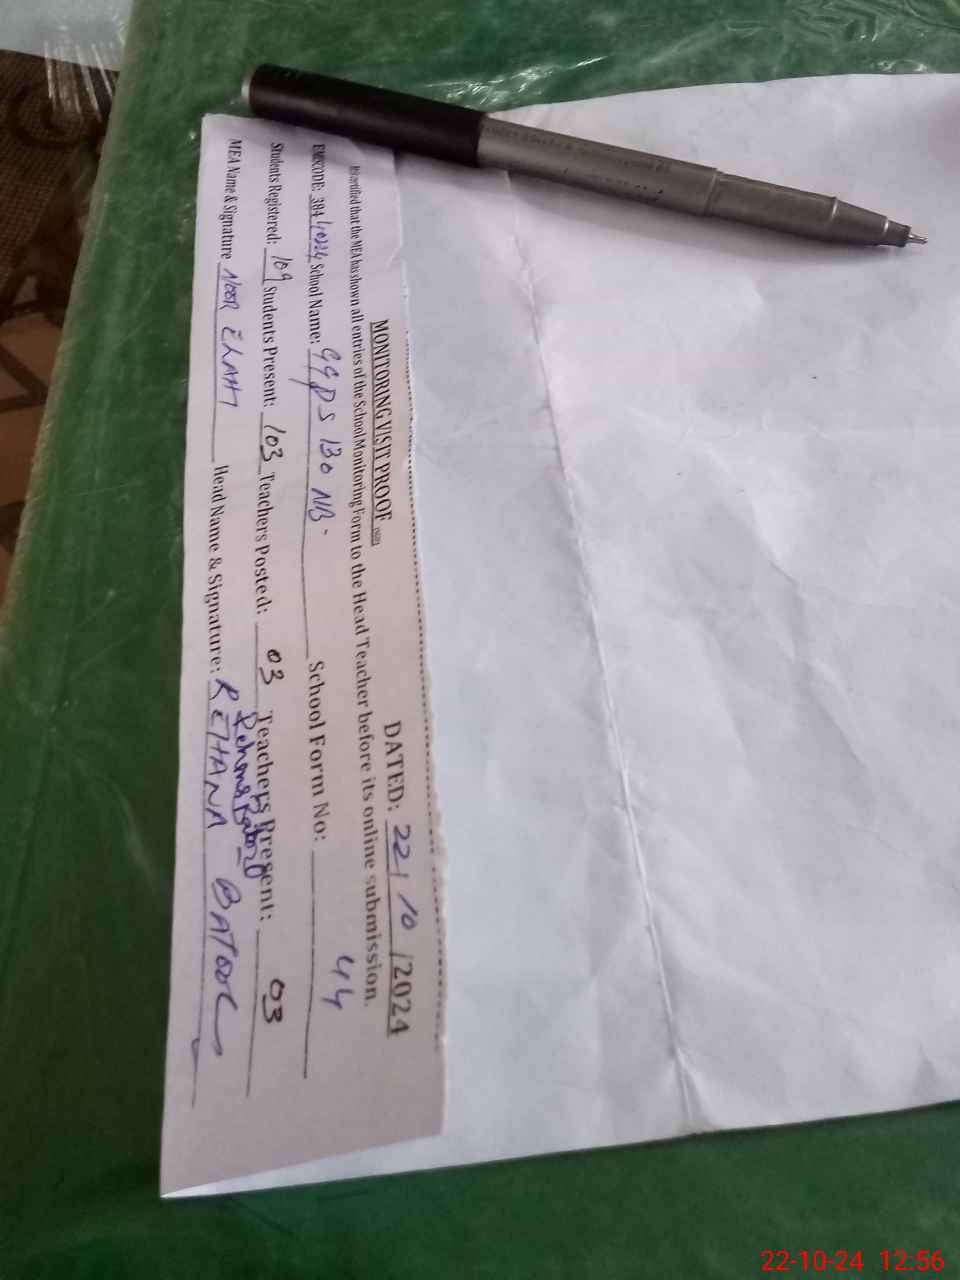 MONITORING VISIT PROOF DATED: 22/10/2024
It is certified that the MEA has shown all entries of the School Monitoring Form to the Head Teacher before its online submission.
EMISCODE: 384 10224 School Name: GGPS 130 NB School Form No: 44
Students Registered: 109 Students Present: 103 Teachers Posted: 03 Teachers Present: 03
MEA Name & Signature NOOR ELAHI Head Name & Signature: REHANA BATOOL
Rehana Batool
22-10-24 12:56